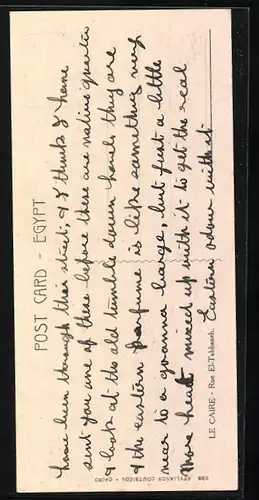 POST CARD - EGYPT
have been through this street, & I think I have
sent you one of these before, these are native quarters
& look at the old tumble down hovels they are
& the eastern perfume is like something very
near to a goanna barge, but just a little
more heat mixed up with it to get the real
Eastern odour with it
LE CAIRE - Rue El-Tabbaneh.
STYLIANOS COUTSICOS - CAIRO